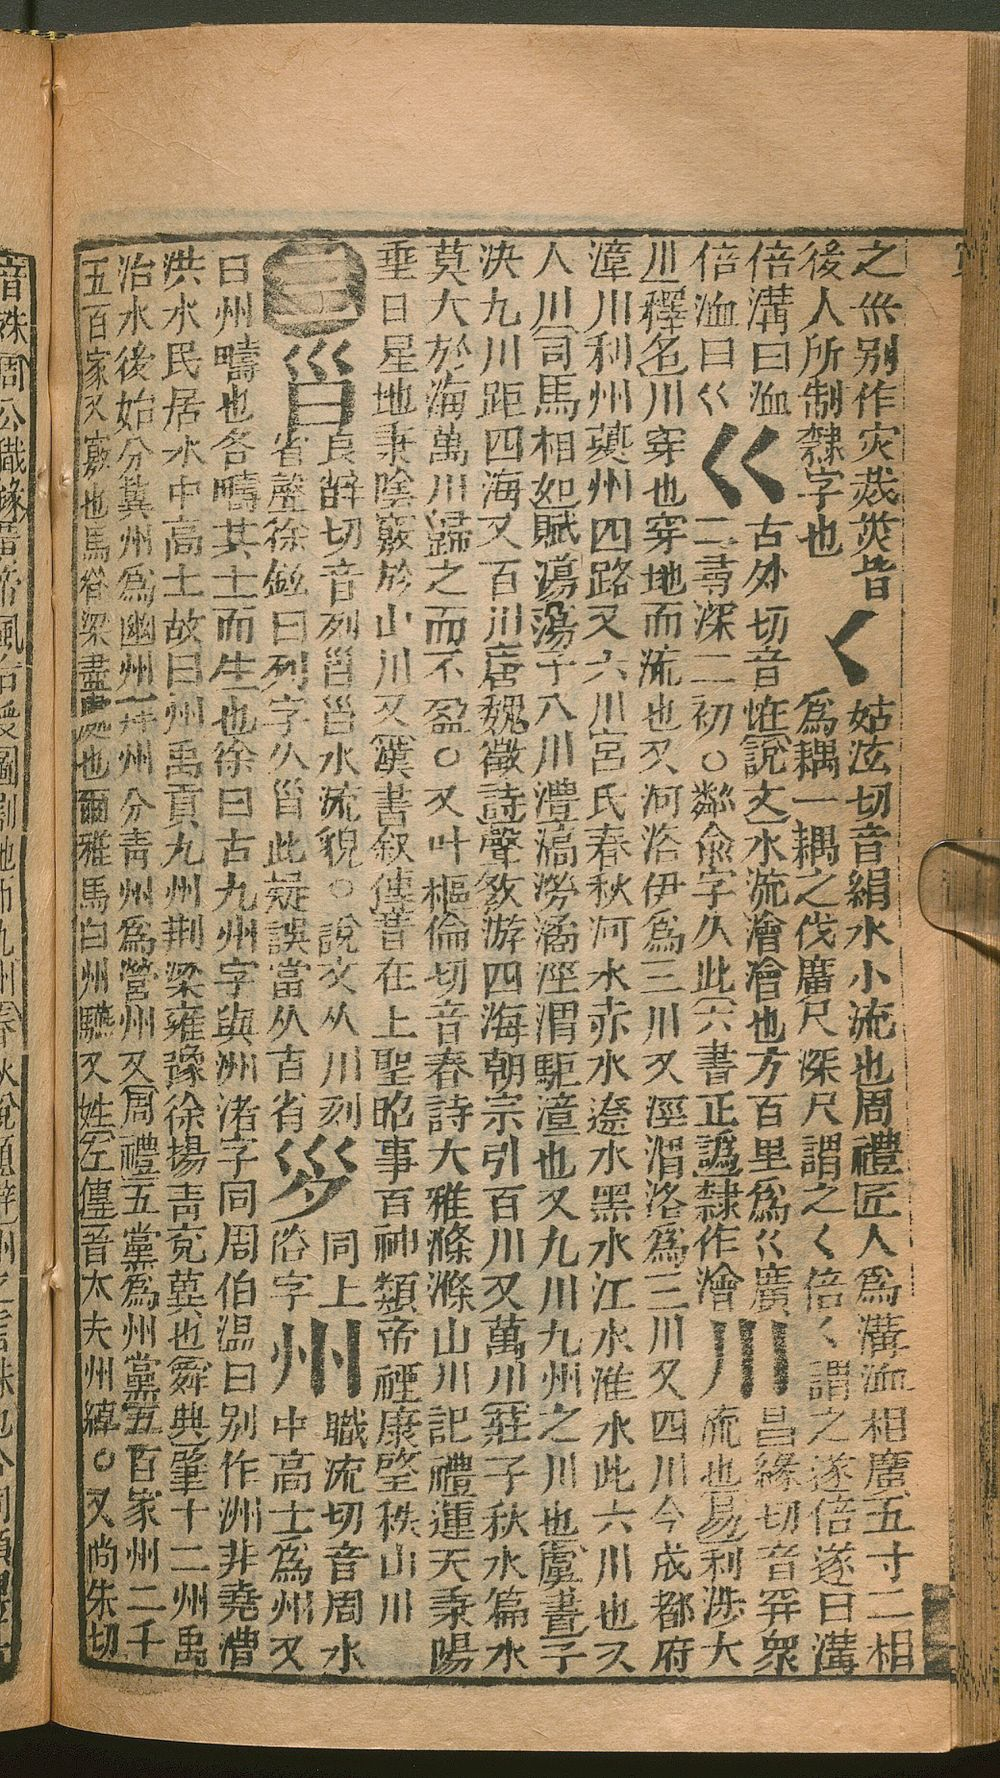 之𡿧别作灾烖災皆
後人所制隸字也
𡿨
姑泫切音絹水小流也周禮匠人爲溝洫相廣五寸二相
爲耦一耦之伐廣尺深尺謂之𡿨倍𡿨謂之遂倍遂曰溝
倍溝曰洫
倍洫曰巜
巜
古外切音㤬說文水流澮澮也方百里爲巜廣
二尋深二初○鄰俞字久此六書正譌隸作澮
川
昌緣切音穿衆
流也易利涉大
川釋名川穿也穿地而流也又河洛伊爲三川又涇渭洛爲三川又四川今成都府
潼川利州夔州四路又六川宮氏春秋河水赤水遼水黑水江水淮水此六川也又
人川司馬相如賦蕩蕩于八川灃滈澇潏涇渭駆滻也又九川九州之川也虞書予
決九川距四海又百川唐魏徵詩聲敎游四海朝宗引百川又萬川莊子秋水篇水
莫大於海萬川歸之而不盈○又叶樞倫切音春詩大雅滌滌山川記禮運天秉陽
垂日星地秉陰竅於山川又漢書叙傳昔在上聖昭事百神類帝禋康望秩山川
三
𡿪
良辥切音列𡿪𡿪水流貌○說文从川列
省聲徐鉉曰列字从𡿪此疑誤當从㫖省
𡿫
同上
俗字
州
職流切音周水
中高土爲州又
曰州疇也各疇其土而生也徐曰古九州字與洲渚字同周伯温曰别作洲非堯遭
洪水民居水中高土故曰州禹貢九州荆梁雍豫徐揚靑兖冀也舜典肇十二州禹
治水後始分冀州爲幽州并州分靑州爲營州又周禮五黨爲州黨五百家州二千
五百家又竅也馬答梁盡處也爾雅馬白州驠又姓左傳晉大夫州綽○又尙朱切